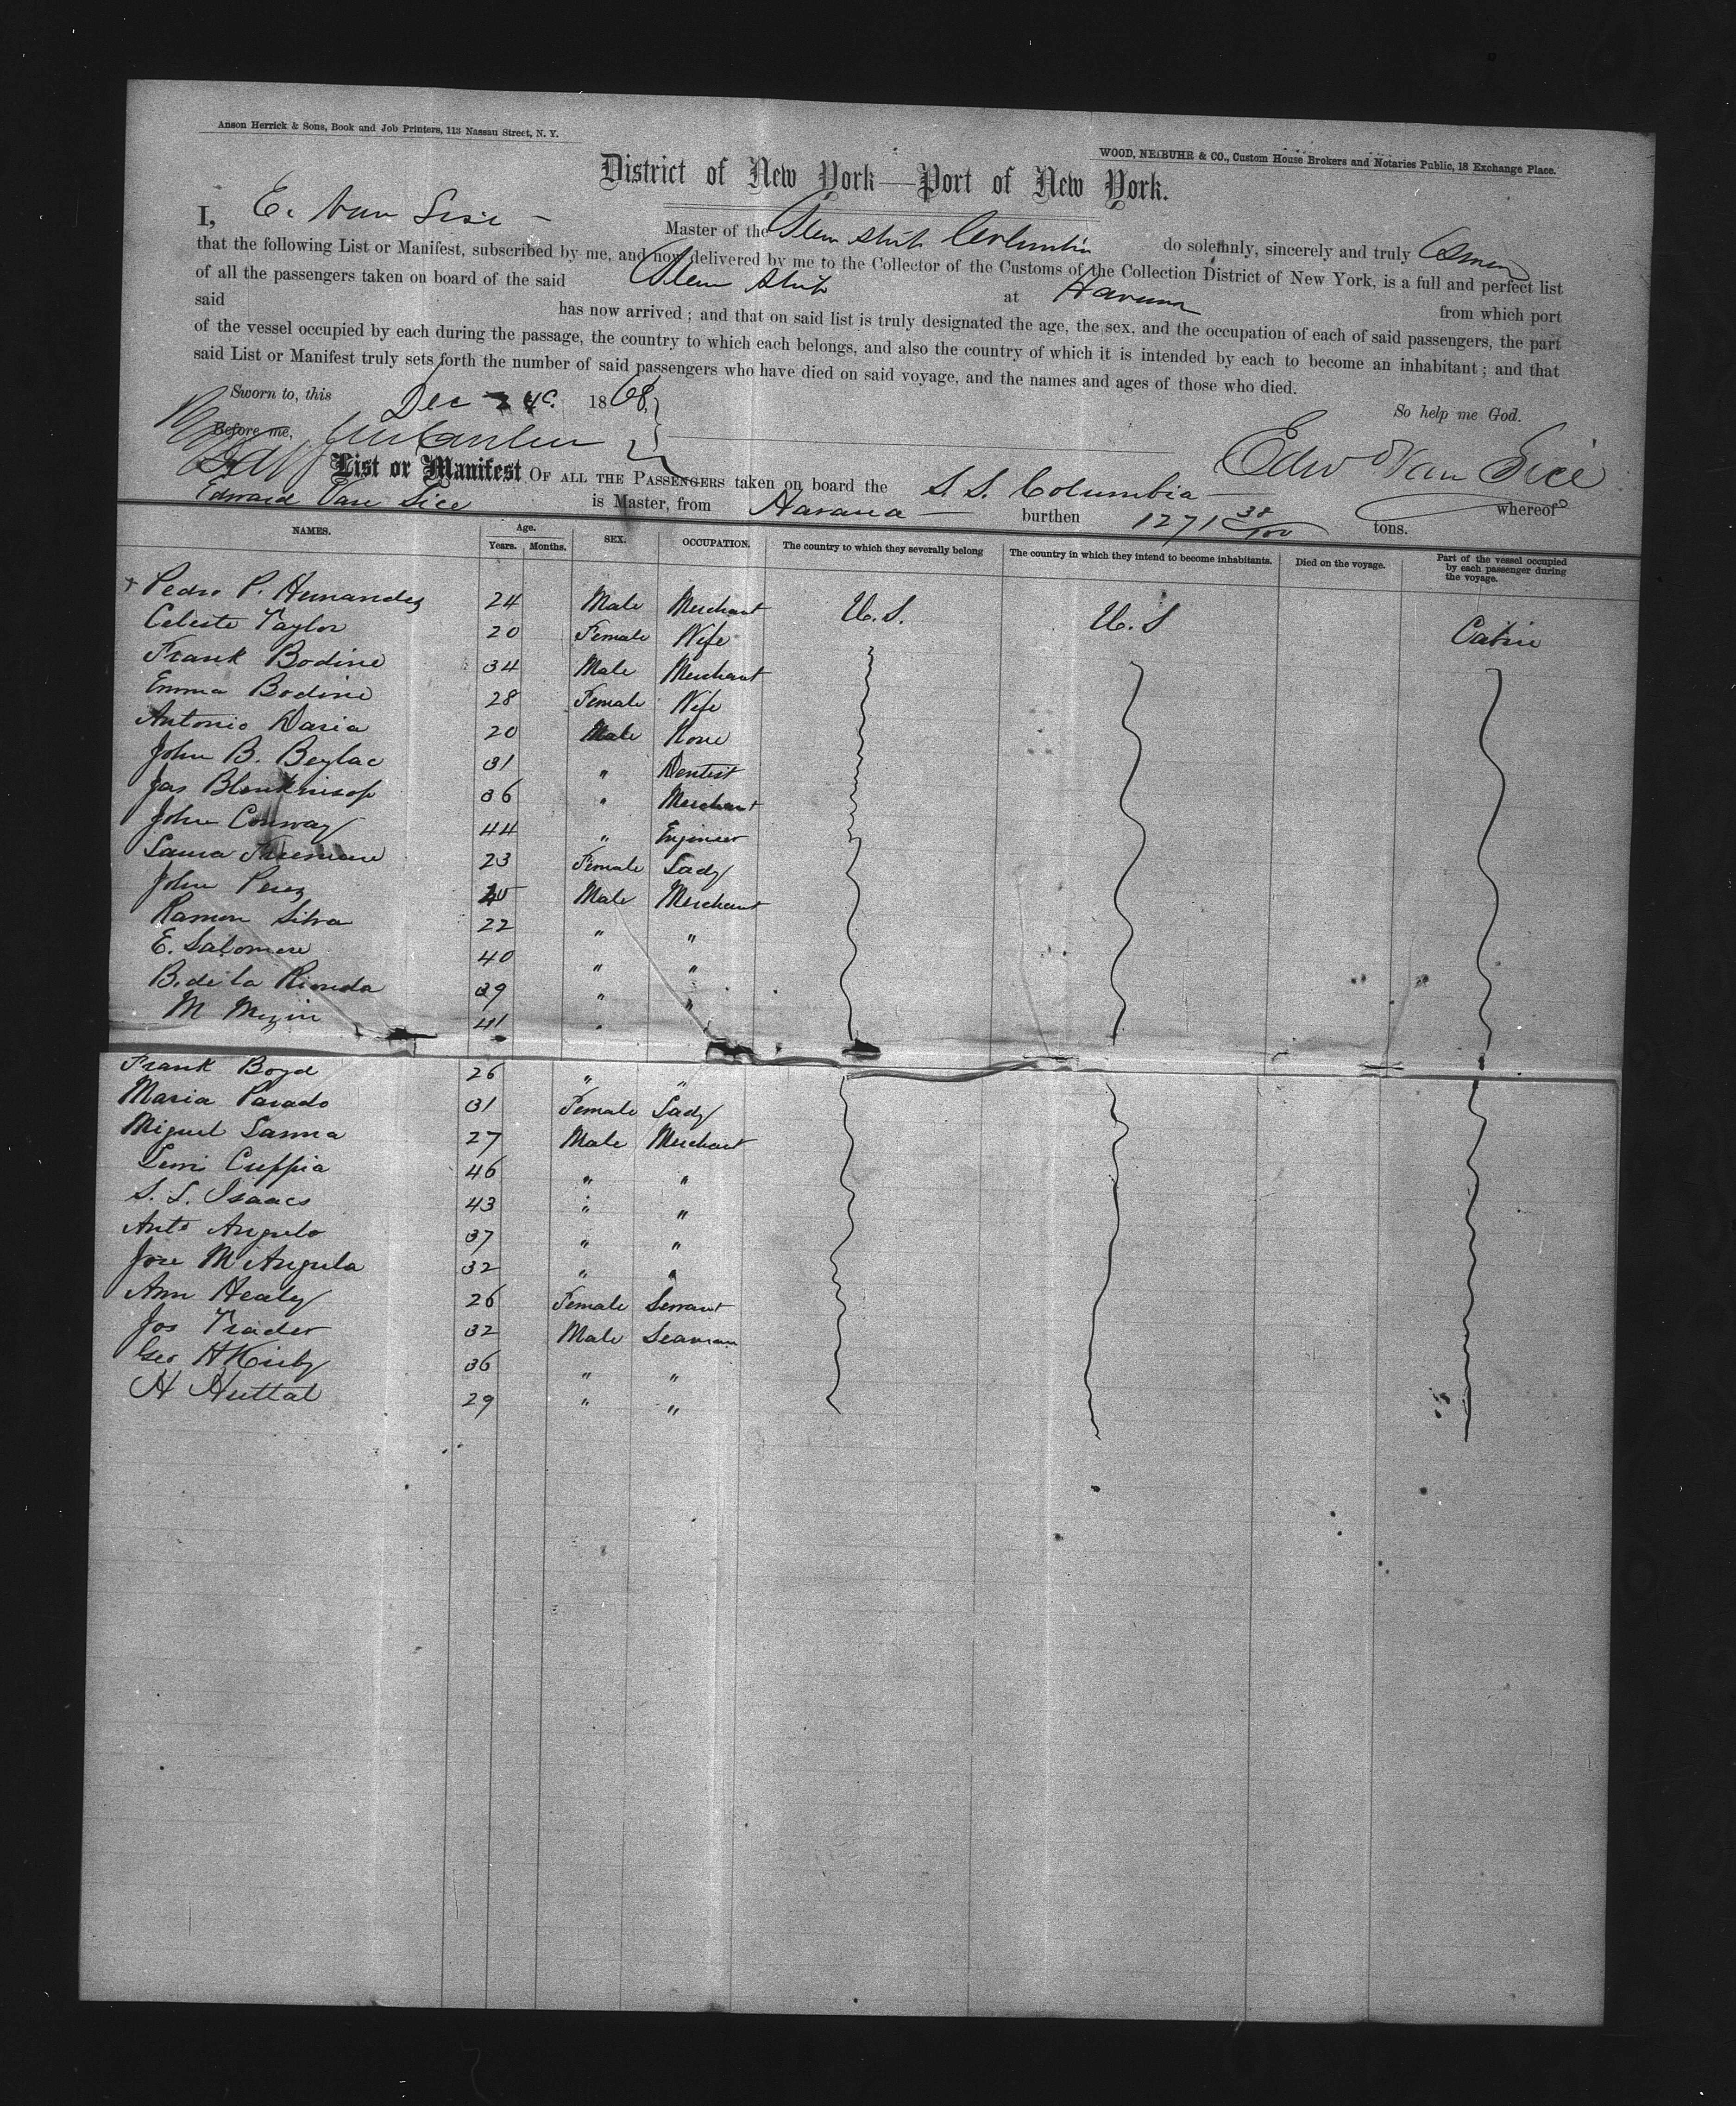 Anson Herrick & Sons, Book and Job Printers, 113 Nassau Street, N. Y.
WOOD, NEIBUHR & CO., Custom House Brokers and Notaries Public, 18 Exchange Place.
District of New York—Port of New York.
I, E. Van Sice - Master of the Steam Ship Columbia do solemnly, sincerely and truly Swear
that the following List or Manifest, subscribed by me, and now delivered by me to the Collector of the Customs of the Collection District of New York, is a full and perfect list
of all the passengers taken on board of the said Steam Ship at Havana from which port
said has now arrived; and that on said list is truly designated the age, the sex, and the occupation of each of said passengers, the part
of the vessel occupied by each during the passage, the country to which each belongs, and also the country of which it is intended by each to become an inhabitant; and that
said List or Manifest truly sets forth the number of said passengers who have died on said voyage, and the names and ages of those who died.
Sworn to, this Dec 1868, So help me God.
Before me, Edw Van Sice
List or Manifest OF ALL THE PASSENGERS taken on board the S. S. Columbia whereof
Edward Van Sice is Master, from Havana burthen 1271 38/100 tons.
NAMES. Age. Years. Months. SEX. OCCUPATION. The country to which they severally belong The country in which they intend to become inhabitants. Died on the voyage. Part of the vessel occupied by each passenger during the voyage.
Pedro P. Hernandez 24 Male Merchant U.S. U.S Cabin
Celeste Taylor 20 Female Wife
Frank Bodine 34 Male Merchant
Emma Bodine 28 Female Wife
Antonio Daria 20 Male None
John B. Beylac 31 " Dentist
Jas Blenkinsop 36 " Merchant
John Conway 44 " Engineer
Laura Freeman 23 Female Lady
John Perez Male Merchant
Ramon Silva 22 " "
E. Salomon 40 " "
B. de la Rionda 39 " "
M 41 "
Frank Boyd 26 " "
Maria Parado 31 Female Lady
Miguel Sanna 27 Male Merchant
Cuppia 46 " "
S. S. Isaacs 43 " "
Anto Angulo 37 " "
Jose M Angula 32 " "
Ann Healey 26 Female Servant
Jos Trader 32 Male Seaman
Geo H Kirby 36 " "
H Huttal 29 " "